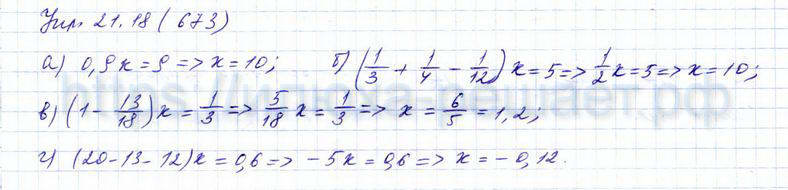 Упр. 21.18 (673)
а) 0,9x = 9 => x = 10; б) (1/3 + 1/4 - 1/12) x = 5 => 1/2 x = 5 => x = 10;
в) (1 - 13/18) x = 1/3 => 5/18 x = 1/3 => x = 6/5 = 1,2;
г) (20-13-12)x = 0,6 => -5x = 0,6 => x = -0,12.